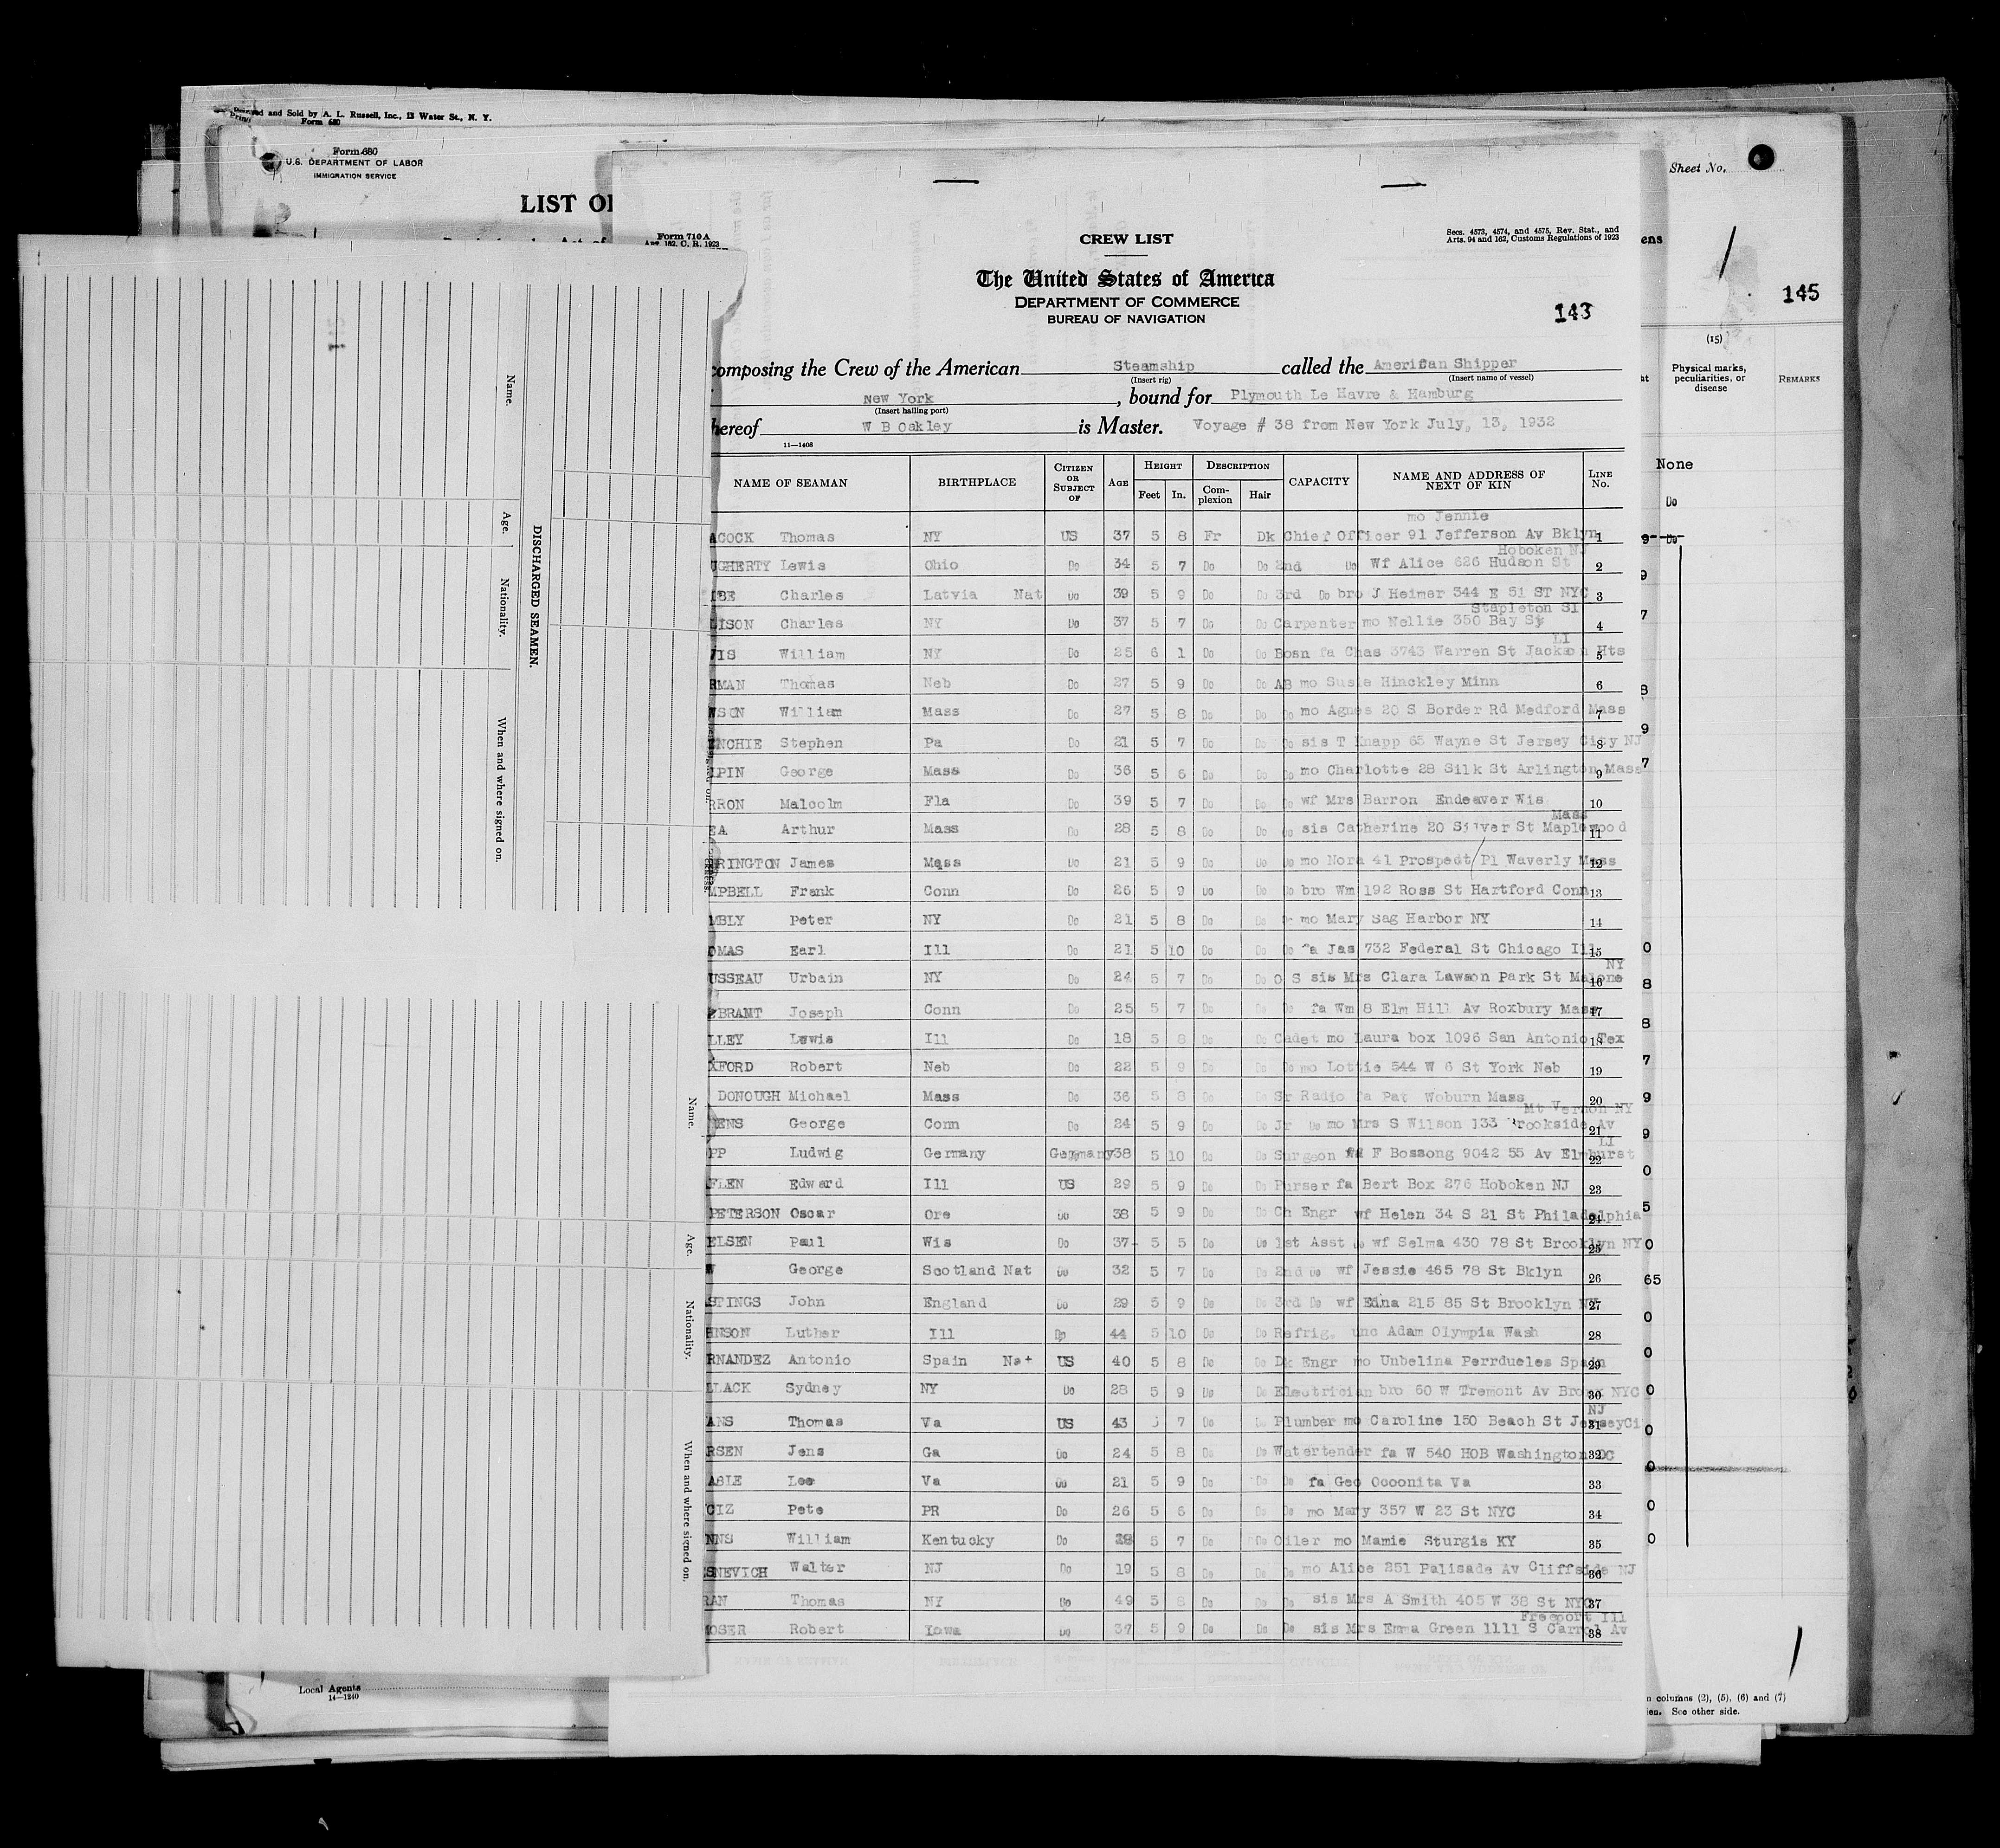 and Sold by A. L. Russell, Inc., 13 Water St., N. Y.
Form 680
Form 680
U.S. DEPARTMENT OF LABOR
IMMIGRATION SERVICE
LIST OF
Sheet No.
145
(15)
Physical marks, peculiarities, or disease
REMARKS
None
Do
Do
Form 710 A
Art. 162, C. R. 1923
CREW LIST
Secs. 4573, 4574, and 4575, Rev. Stat., and
Arts. 94 and 162, Customs Regulations of 1923
The United States of America
DEPARTMENT OF COMMERCE
BUREAU OF NAVIGATION
143
composing the Crew of the American Steamship called the Amerifan Shipper
(Insert rig) (Insert name of vessel)
New York , bound for Plymouth Le Havre & Hamburg
(Insert hailing port)
hereof W B Oakley is Master. Voyage # 38 from New York July, 13, 1932
11—1408
NAME OF SEAMAN BIRTHPLACE CITIZEN OR SUBJECT OF AGE HEIGHT Feet In. DESCRIPTION Complexion Hair CAPACITY NAME AND ADDRESS OF NEXT OF KIN LINE No.
mo Jennie
ACOCK Thomas NY US 37 5 8 Fr Dk Chief Officer 91 Jefferson Av Bklyn 1
Hoboken NJ
UGHERTY Lewis Ohio Do 34 5 7 Do Do 2nd Do Wf Alice 626 Hudson St 2
IBE Charles Latvia Nat Do 39 5 9 Do Do 3rd Do bro J Heimer 344 E 51 ST NYC 3
Stapleton SI
ISON Charles NY Do 37 5 7 Do Do Carpenter mo Nellie 350 Bay St 4
LI
VIS William NY Do 25 6 1 Do Do Bosn fa Chas 3743 Warren St Jackson Hts 5
RMAN Thomas Neb Do 27 5 9 Do Do AB mo Susie Hinckley Minn 6
WSON William Mass Do 27 5 8 Do Do Do mo Agnes 20 S Border Rd Medford Mass 7
NCHIE Stephen Pa Do 21 5 7 Do Do Do sis T Knapp 63 Wayne St Jersey City NJ 8
PIN George Mass Do 36 5 6 Do Do Do mo Charlotte 28 Silk St Arlington Mass 9
RRON Malcolm Fla Do 39 5 7 Do Do Do wf Mrs Barron Endeaver Wis 10
Mass
EA Arthur Mass Do 28 5 8 Do Do Do sis Catherine 20 Silver St Maplewood 11
RRINGTON James Mass Do 21 5 9 Do Do Do mo Nora 41 Prospect Pl Waverly Mass 12
MPBELL Frank Conn Do 26 5 9 Do Do Do bro Wm 192 Ross St Hartford Conn 13
MBLY Peter NY Do 21 5 8 Do Do mo Mary Sag Harbor NY 14
OMAS Earl Ill Do 21 5 10 Do Do Do fa Jas 732 Federal St Chicago Ill 15
NY
USSEAU Urbain NY Do 24 5 7 Do Do O S sis Mrs Clara Lawson Park St Malone 16
BRANT Joseph Conn Do 25 5 7 Do Do Do fa Wm 8 Elm Hill Av Roxbury Mass 17
LLEY Lewis Ill Do 18 5 8 Do Do Cadet mo Laura box 1096 San Antonio Tex 18
XFORD Robert Neb Do 22 5 9 Do Do Do mo Lottie 544 W 6 St York Neb 19
DONOUGH Michael Mass Do 36 5 8 Do Do Sr Radio fa Pat Woburn Mass 20
Mt Vernon NY
ENS George Conn Do 24 5 9 Do Do Jr Do mo Mrs S Wilson 133 Brookside Av 21
LI
PP Ludwig Germany Germany 38 5 10 Do Do Surgeon F Bossong 9042 55 Av Elmhurst 22
FLEN Edward Ill US 29 5 9 Do Do Purser fa Bert Box 276 Hoboken NJ 23
PETERSON Oscar Ore Do 38 5 9 Do Do Ch Engr wf Helen 34 S 21 St Philadelphia 24
ELSEN Paul Wis Do 37 5 5 Do Do 1st Asst Do wf Selma 430 78 St Brooklyn NY 25
George Scotland Nat Do 32 5 7 Do Do 2nd Do wf Jessie 465 78 St Bklyn 26
SPINGS John England Do 29 5 9 Do Do 3rd Do wf Edna 215 85 St Brooklyn NY 27
HNSON Luther Ill Do 44 5 10 Do Do Refrig. unc Adam Olympia Wash 28
RNANDEZ Antonio Spain Nat US 40 5 8 Do Do Dk Engr mo Unbelina Perrdueles Spain 29
LLACK Sydney NY Do 28 5 9 Do Do Electrician bro 60 W Tremont Av Bronx NYC 30
NJ
ANS Thomas Va US 43 5 7 Do Do Plumber mo Caroline 150 Beach St JerseyCi 31
RSEN Jens Ga Do 24 5 8 Do Do Watertender fa W 540 HOB Washington DC 32
ABLE Lee Va Do 21 5 9 Do Do Do fa Geo Ocoonita Va 33
CIZ Pete PR Do 26 5 6 Do Do Do mo Mary 357 W 23 St NYC 34
NNS William Kentucky Do 38 5 7 Do Do Oiler mo Mamie Sturgis KY 35
SNEVICH Walter NJ Do 19 5 8 Do Do Do mo Alice 251 Palisade Av Cliffside NJ 36
RAN Thomas NY Do 49 5 8 Do Do Do sis Mrs A Smith 405 W 38 St NYC 37
Freeport Ill
MOSER Robert Iowa Do 37 5 9 Do Do Do sis Mrs Emma Green 1111 S Carrol Av 38
DISCHARGED SEAMEN.
Name.
Age.
Nationality.
When and where signed on.
Name.
Age.
Nationality.
When and where signed on.
Local Agents
14—1240
n columns (2), (5), (6) and (7)
See other side.